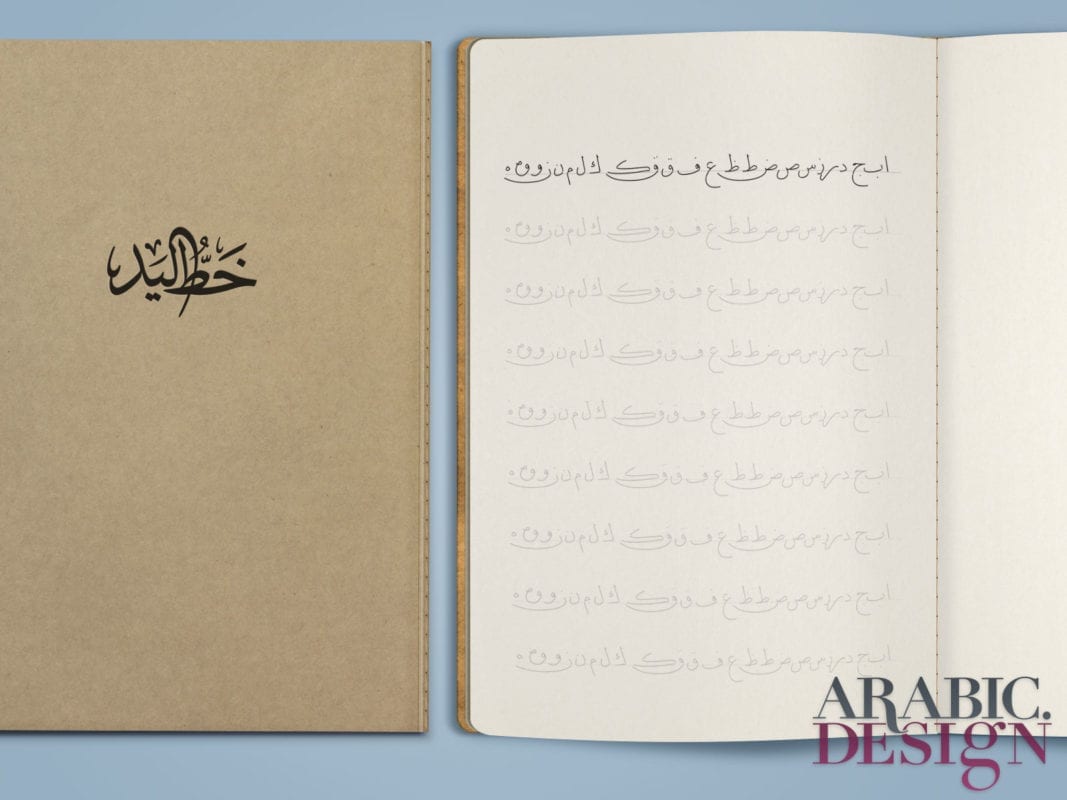 خَطُّ اليَد
ا ب ج د ر ز س ص ص ض ط ظ ع ف ق ق ك ك ل م ن ز و و ه
ا ب ج د ر ز س ص ص ض ط ظ ع ف ق ق ك ك ل م ن ز و و ه
ا ب ج د ر ز س ص ص ض ط ظ ع ف ق ق ك ك ل م ن ز و و ه
ا ب ج د ر ز س ص ص ض ط ظ ع ف ق ق ك ك ل م ن ز و و ه
ا ب ج د ر ز س ص ص ض ط ظ ع ف ق ق ك ك ل م ن ز و و ه
ا ب ج د ر ز س ص ص ض ط ظ ع ف ق ق ك ك ل م ن ز و و ه
ا ب ج د ر ز س ص ص ض ط ظ ع ف ق ق ك ك ل م ن ز و و ه
ا ب ج د ر ز س ص ص ض ط ظ ع ف ق ق ك ك ل م ن ز و و ه
ا ب ج د ر ز س ص ص ض ط ظ ع ف ق ق ك ك ل م ن ز و و ه
ARABIC.
DESIGN